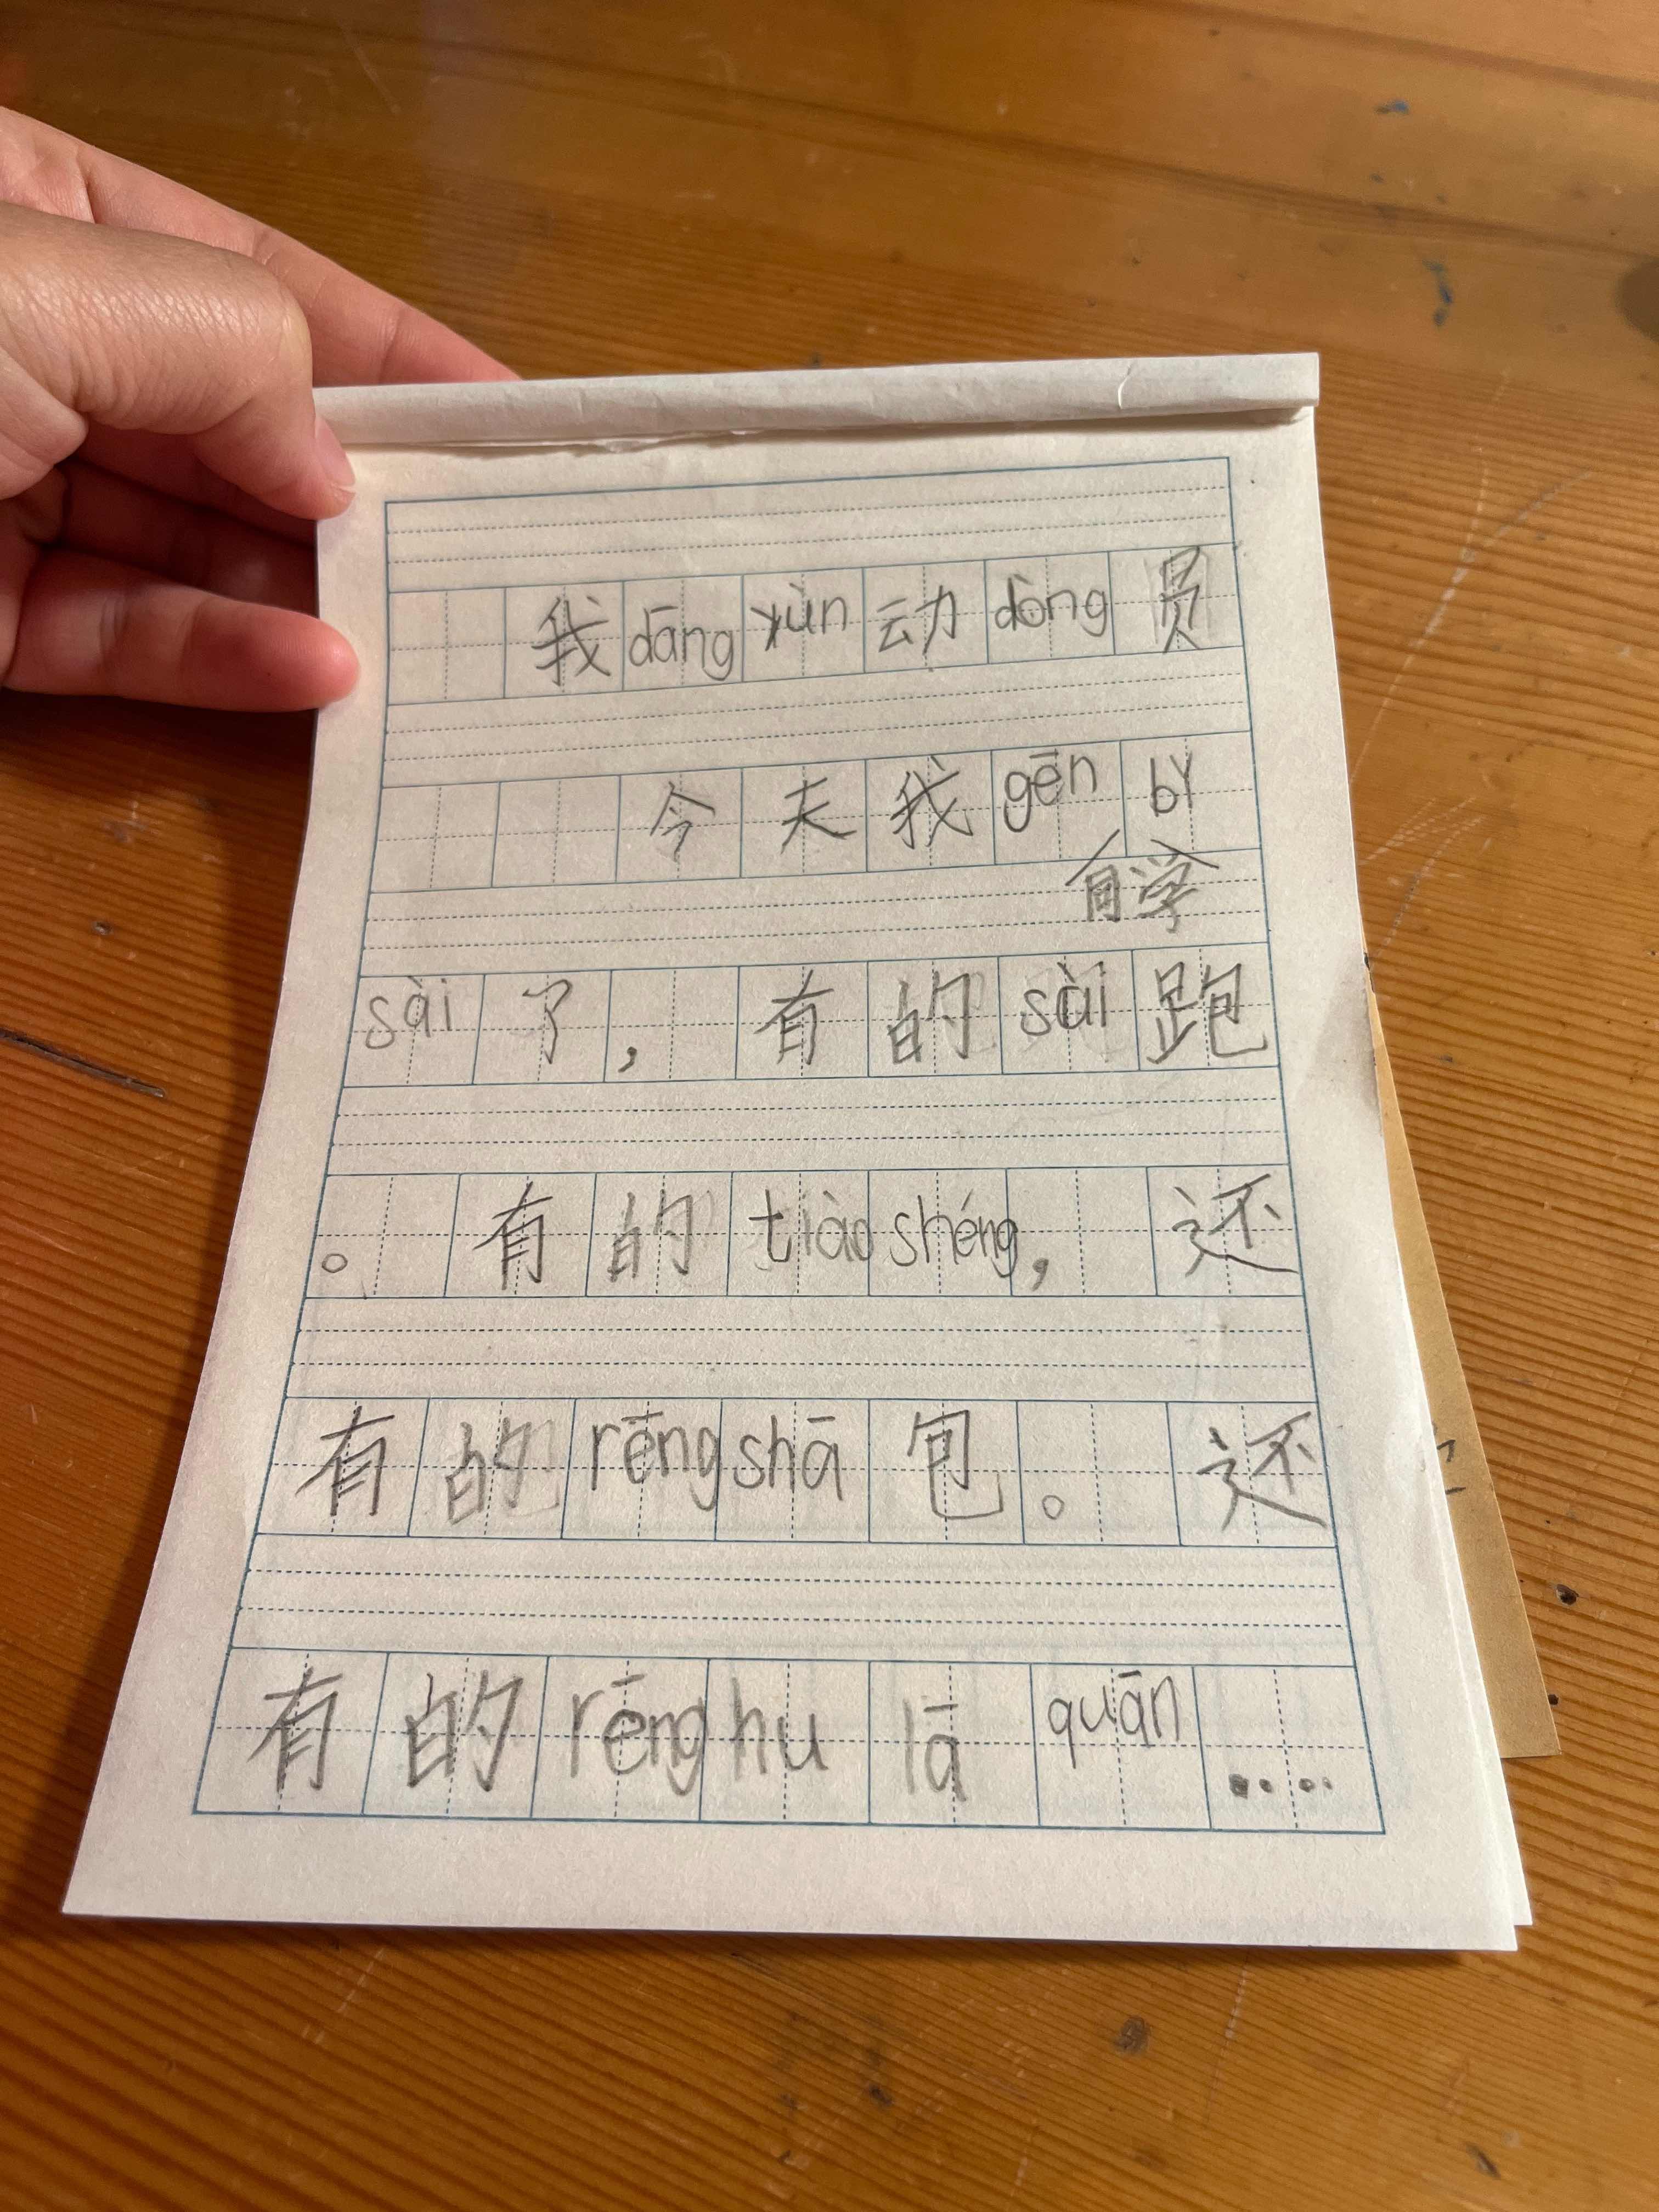 我dāng yùn动dòng员
今天我gēn bǐ
同学
sài了，有的sài跑
。有的tiào shéng，还
有的rēng shā包。还
有的rēng hu lā quān……